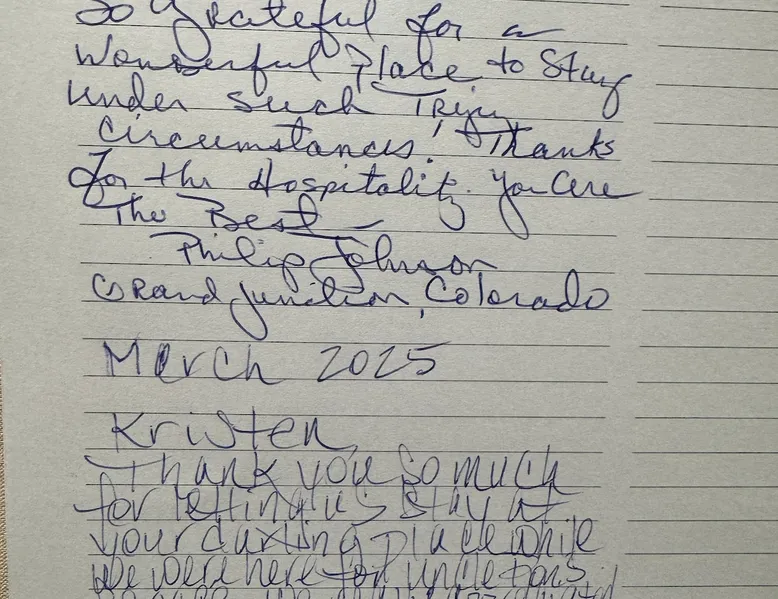 So Grateful for a
Wonderful Place to Stay
under such Trying
circumstances! Thanks
for the Hospitality. You are
The Best —
Philip Johnson
Grand Junction, Colorado
March 2025
Kristen,
Thank you so much
for letting us stay at
your darling place while
we were here for uncle